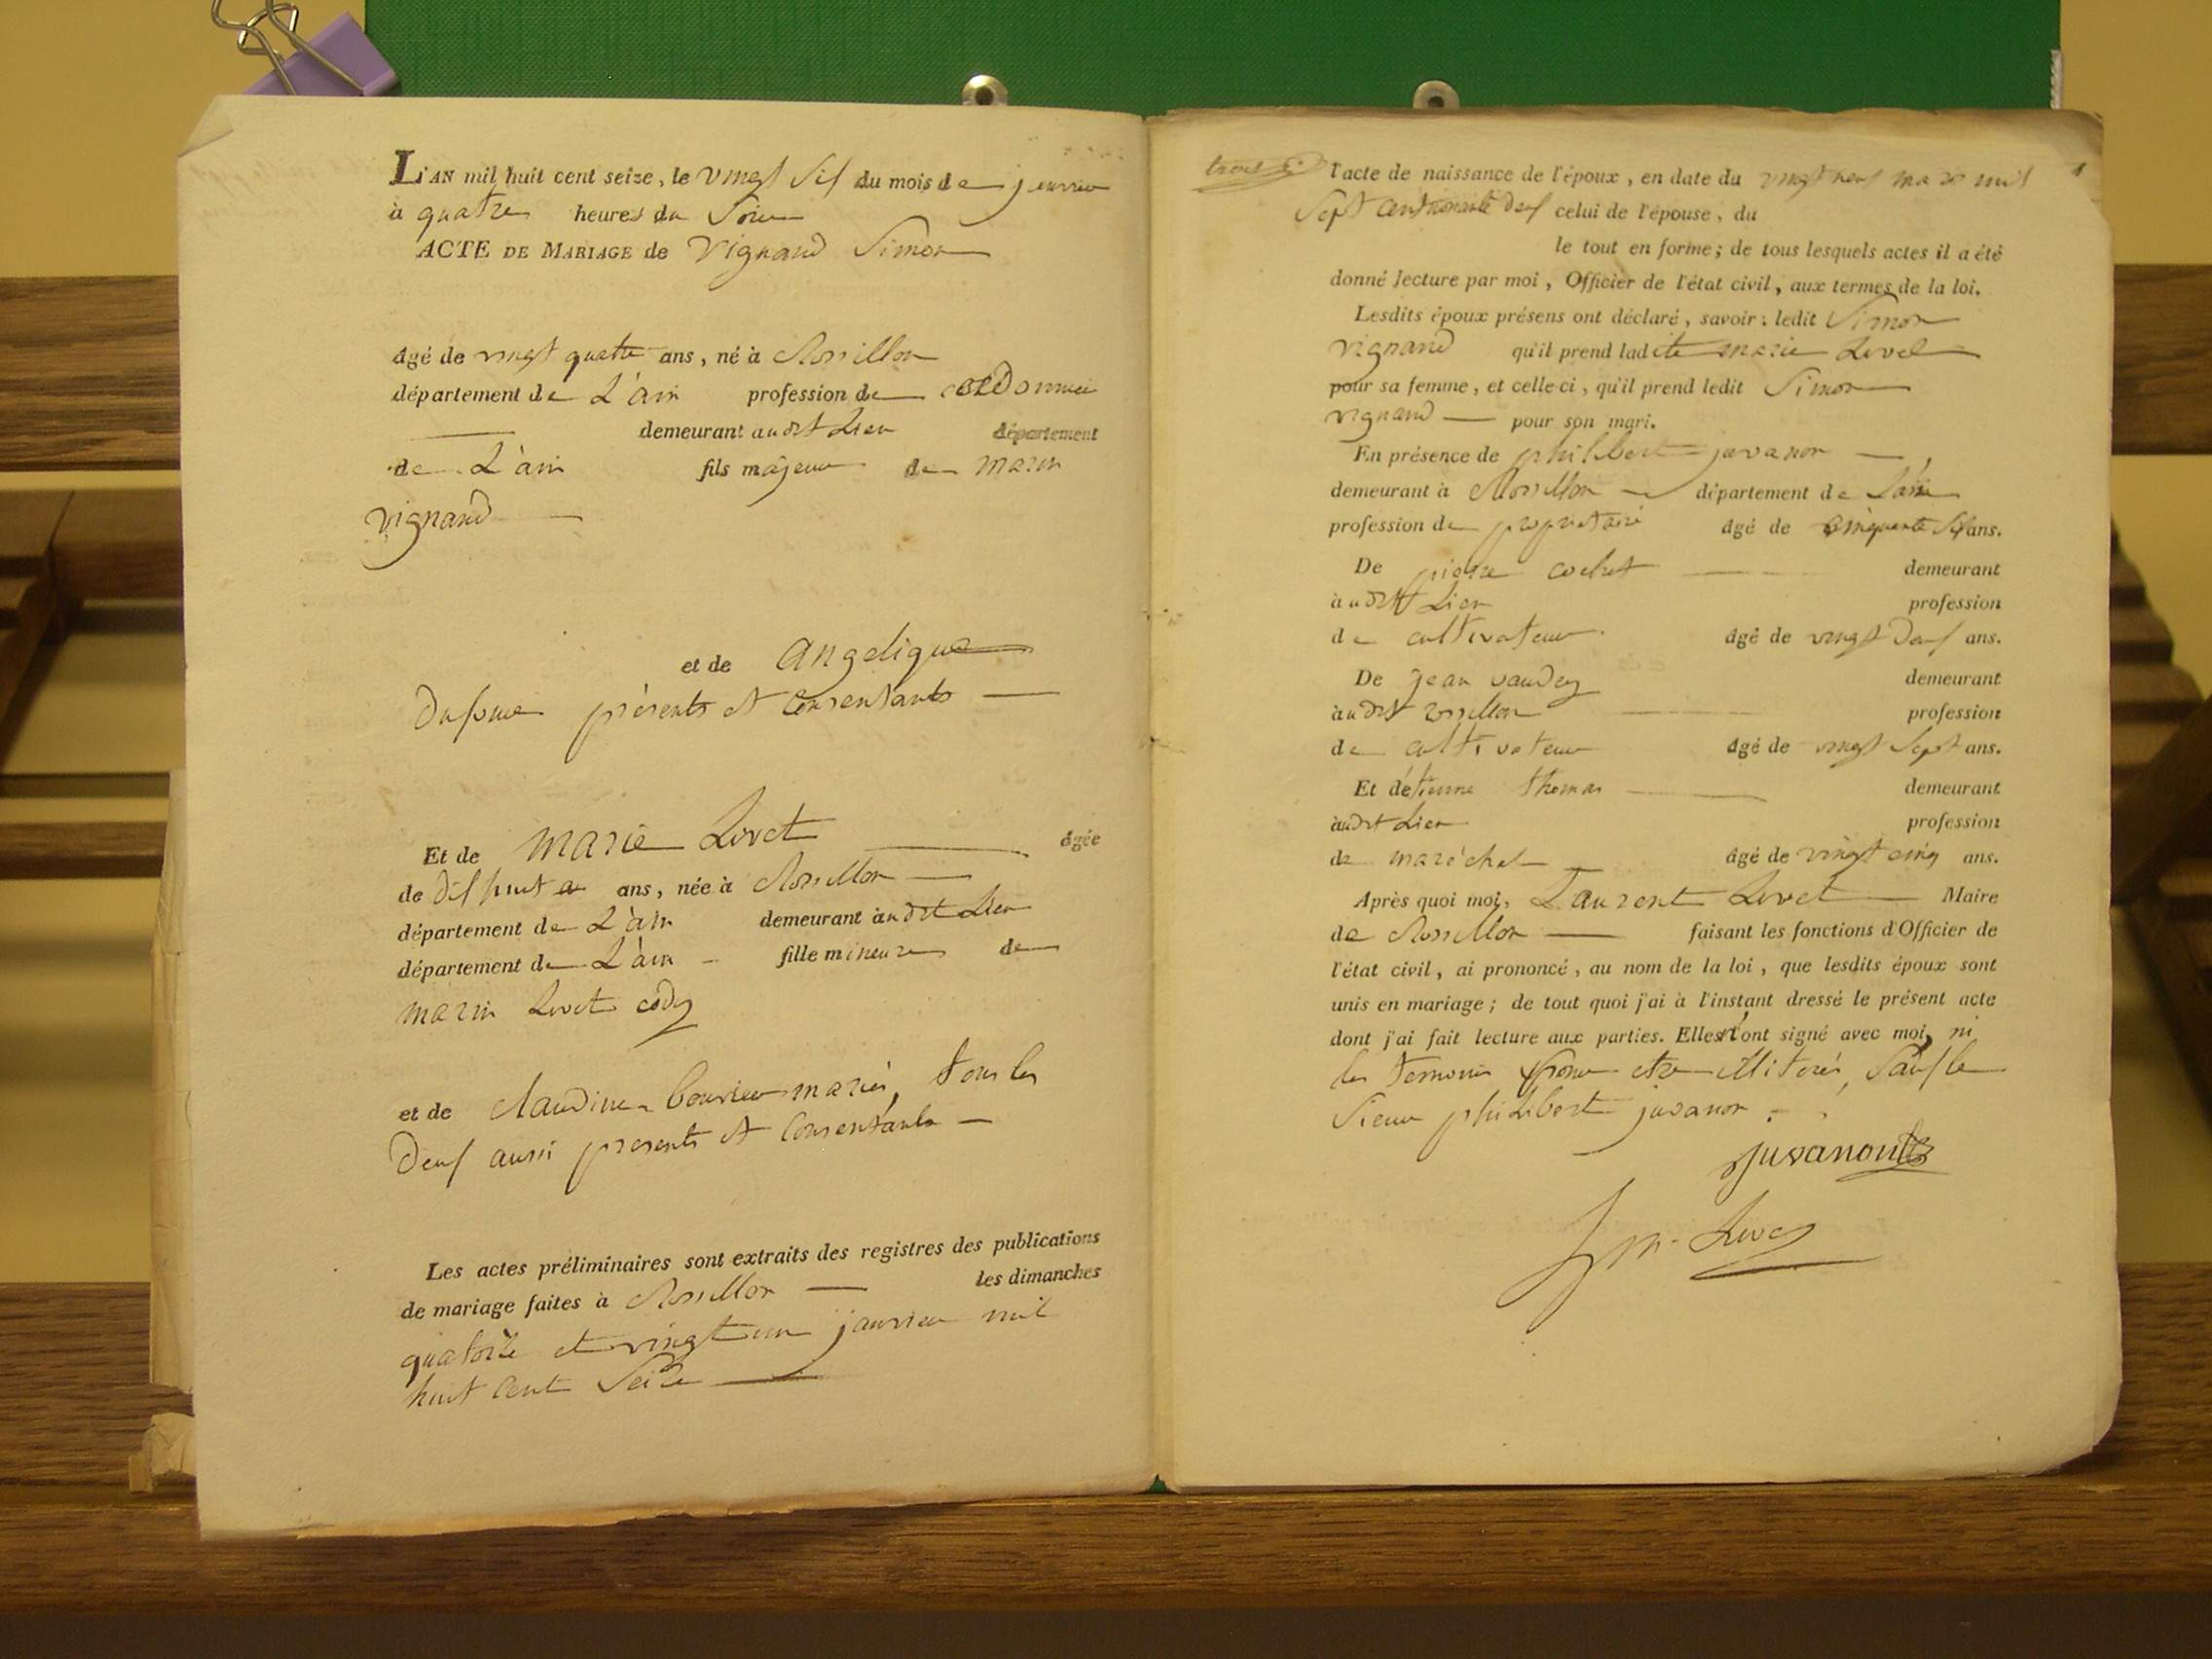 L'AN mil huit cent seize, le vingt six du mois de janvier
à quatre heures du soir
ACTE DE MARIAGE de Vignand Simon
âgé de vingt quatre ans, né à Rossillon
département de L'ain profession de cordonnier
demeurant audit Lieu département
de L'ain fils majeur de marin
vignand
et de Angelique
présents et consentants
Et de Marie Livet âgée
de dix huit ans, née à Rossillon
département de L'ain demeurant audit Lieu
département de L'ain fille mineure de
marin Livet
et de claudine mariés, tous les
deux aussi présents et consentants
Les actes préliminaires sont extraits des registres des publications
de mariage faites à Rossillon les dimanches
quatorze et vingt un janvier mil
huit cent seize
l'acte de naissance de l'époux, en date du vingt neuf mars mil
sept cent nonante deux celui de l'épouse, du
le tout en forme; de tous lesquels actes il a été
donné lecture par moi, Officier de l'état civil, aux termes de la loi.
Lesdits époux présens ont déclaré, savoir: ledit Simon
vignand qu'il prend ladite marie Livet
pour sa femme, et celle-ci, qu'il prend ledit Simon
vignand pour son mari.
En présence de philibert juvanon
demeurant à Rossillon département de L'ain
profession de propriétaire âgé de cinquante six ans.
De pierre cochet demeurant
audit Lieu profession
de cultivateur âgé de vingt deux ans.
De jean demeurant
audit rossillon profession
de cultivateur âgé de vingt sept ans.
Et d'étienne thomas demeurant
audit Lieu profession
de maréchal âgé de vingt cinq ans.
Après quoi moi, Laurent Livet Maire
de Rossillon faisant les fonctions d'Officier de
l'état civil, ai prononcé, au nom de la loi, que lesdits époux sont
unis en mariage; de tout quoi j'ai à l'instant dressé le présent acte
dont j'ai fait lecture aux parties. Elles n'ont signé avec moi, ni
les temoins pour etre illiterés, sauf le
sieur philibert juvanon
juvanon
Livet